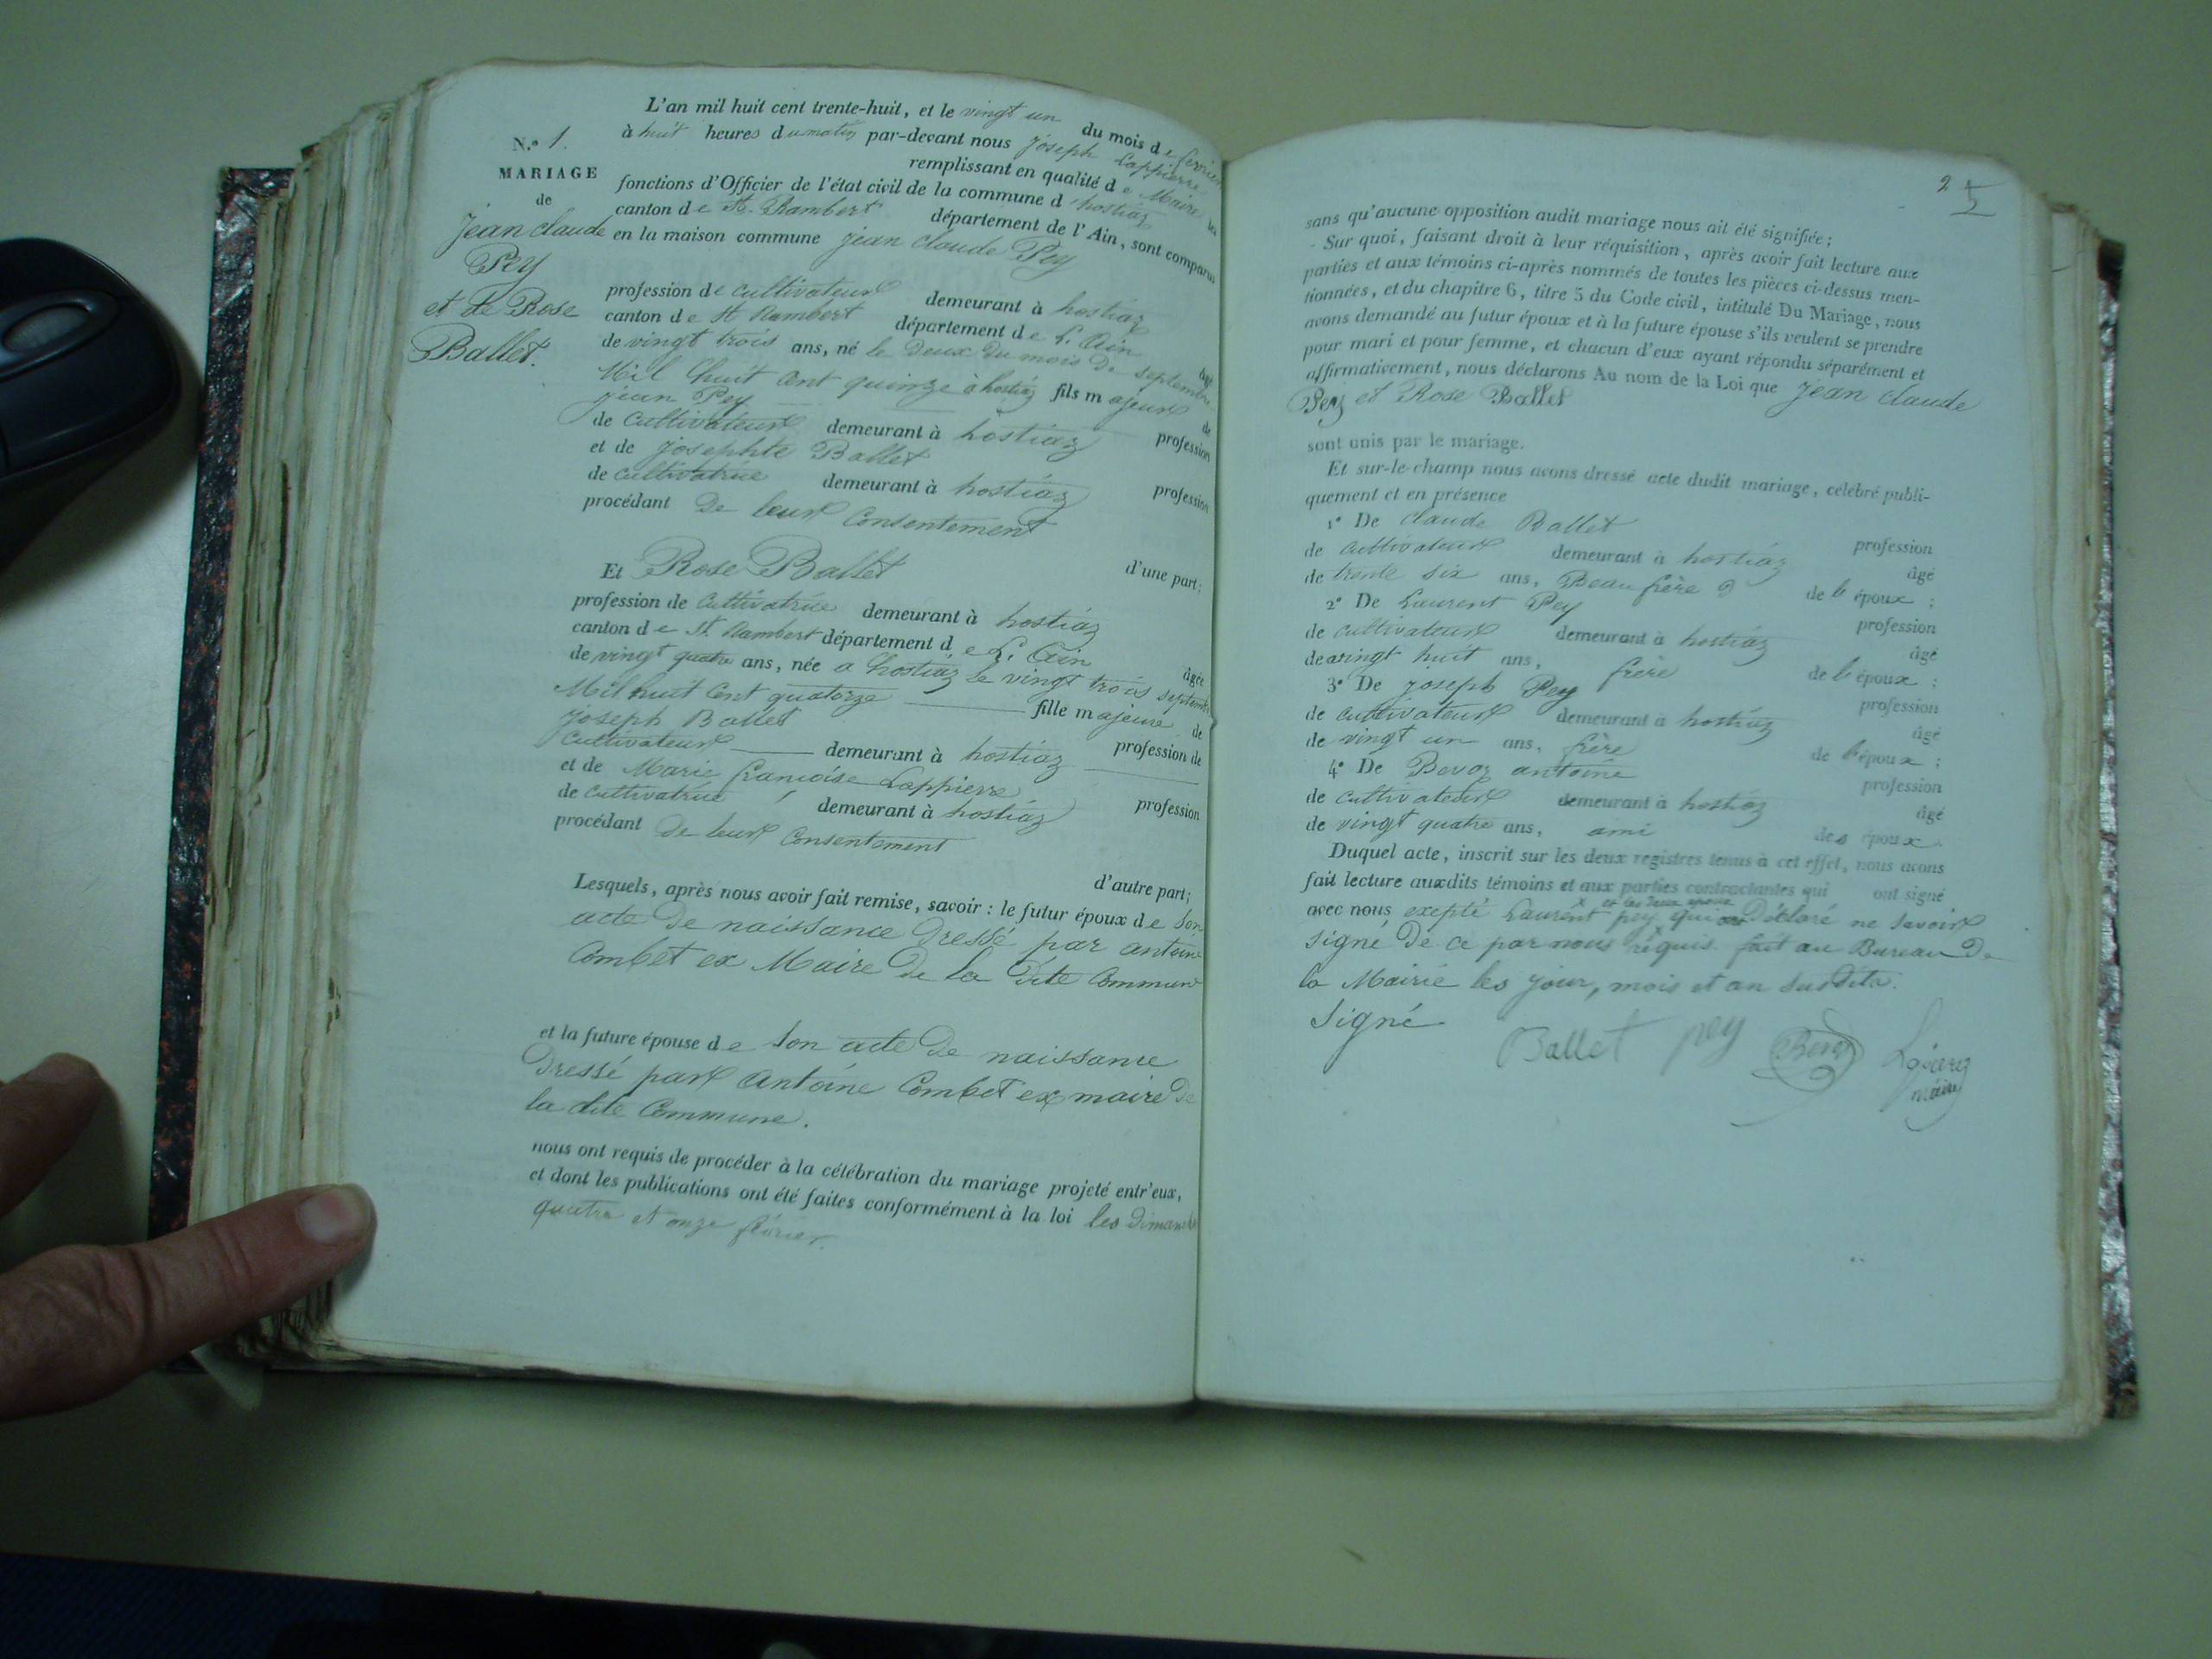 N.º 1.
MARIAGE
de
Jean claude
Pey
et de Rose
Ballet.
L'an mil huit cent trente-huit, et le vingt un du mois de fevrier
à huit heures du matin par-devant nous joseph Lappierre
remplissant en qualité de Maire les
fonctions d'Officier de l'état civil de la commune d'hostiaz
canton de St. Rambert département de l'Ain, sont comparus
en la maison commune jean claude Pey
profession de cultivateur demeurant à hostiaz
canton de St Rambert département de L'Ain âgé
de vingt trois ans, né le deux du mois de septembre
Mil huit cent quinze à hostiaz fils majeur de
jean Pey profession
de cultivateur demeurant à hostiaz
et de josephte Ballet profession
de cultivatrice demeurant à hostiaz
procédant de leur Consentement
d'une part;
Et Rose Ballet
profession de cultivatrice demeurant à hostiaz
canton de St. Rambert département de L'Ain âgée
de vingt quatre ans, née a hostiaz le vingt trois septembre
Mil huit Cent quatorze fille majeure de
joseph Ballet profession de
Cultivateur demeurant à hostiaz
et de Marie francoise Lappierre profession
de cultivatrice demeurant à hostiaz
procédant de leur Consentement
d'autre part;
Lesquels, après nous avoir fait remise, savoir : le futur époux de son
acte de naissance dressé par antoine
Combet ex Maire de la dite Commune
et la future épouse de son acte de naissance
dressé par Antoine Combet ex maire de
la dite Commune.
nous ont requis de procéder à la célébration du mariage projeté entr'eux,
et dont les publications ont été faites conformément à la loi les dimanche
quatre et onze février.
2
sans qu'aucune opposition audit mariage nous ait été signifiée;
Sur quoi, faisant droit à leur réquisition, après avoir fait lecture aux
parties et aux témoins ci-après nommés de toutes les pièces ci-dessus men-
tionnées, et du chapitre 6, titre 5 du Code civil, intitulé Du Mariage, nous
avons demandé au futur époux et à la future épouse s'ils veulent se prendre
pour mari et pour femme, et chacun d'eux ayant répondu séparément et
affirmativement, nous déclarons Au nom de la Loi que jean claude
Pey et Rose Ballet
sont unis par le mariage.
Et sur-le-champ nous avons dressé acte dudit mariage, célébré publi-
quement et en présence
1º De claude Ballet profession
de cultivateur demeurant à hostiaz âgé
de trente six ans, Beau frère de l'époux ;
2º De Laurent Pey profession
de cultivateur demeurant à hostiaz âgé
de vingt huit ans, frère de l'époux ;
3º De joseph Pey profession
de cultivateur demeurant à hostiaz âgé
de vingt un ans, frère de l'époux ;
4º De Bevoz antoine profession
de cultivateur demeurant à hostiaz âgé
de vingt quatre ans, ami des époux.
Duquel acte, inscrit sur les deux registres tenus à cet effet, nous avons
fait lecture auxdits témoins et aux parties contractantes qui ont signé
et les deux epoux
avec nous exepté Laurent pey qui ont déclaré ne savoir
signé de ce par nous réquis. fait au Bureau de
la Mairie les jour, mois et an susdits.
Signé
Ballet pey Bevoz
maire